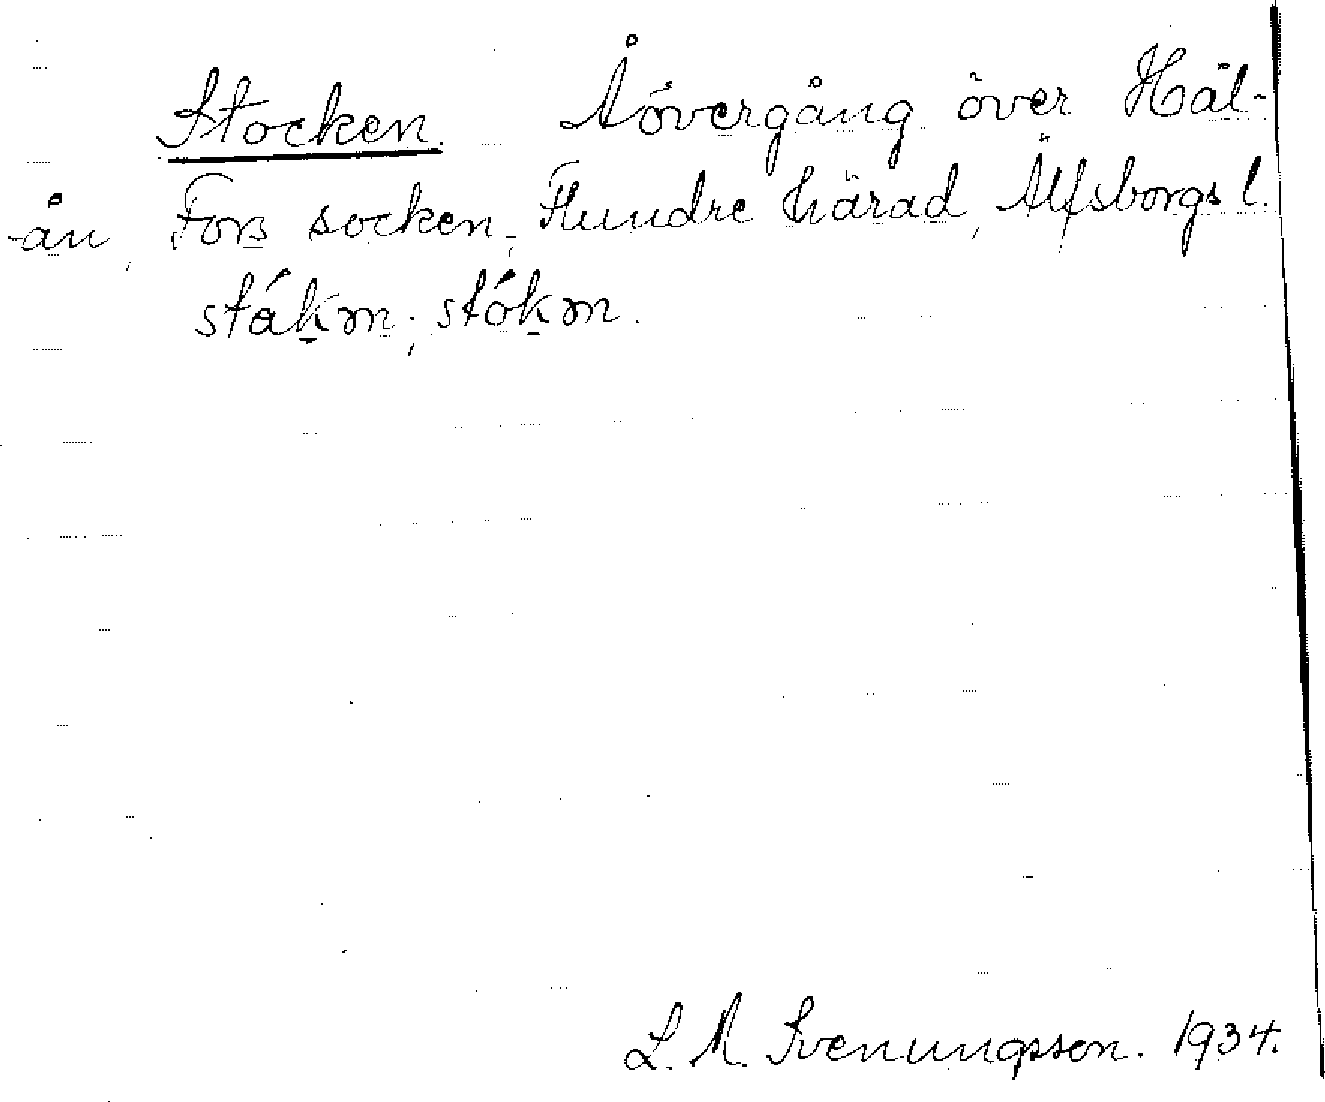 Stocken. Åövergång över Häl-
ån, Fors socken, Flundre härad, Älfsborgs l.
ståkm; stókm.
L. M. Svenungsson. 1934.